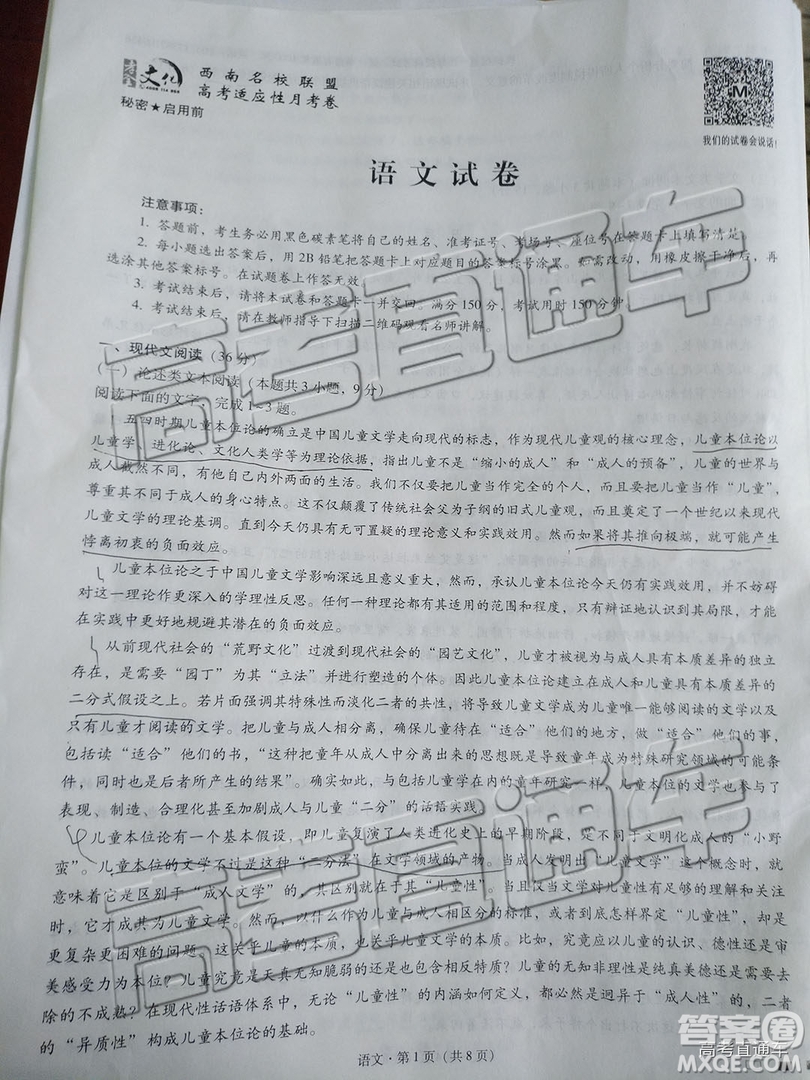 文化
西南名校联盟
高考适应性月考卷
秘密★启用前
我们的试卷会说话!
语文试卷
注意事项:
1. 答题前,考生务必用黑色碳素笔将自己的姓名、准考证号、考场号、座位号在答题卡上填写清楚。
2. 每小题选出答案后,用 2B 铅笔把答题卡上对应题目的答案标号涂黑。如需改动,用橡皮擦干净后,再
选涂其他答案标号。在试题卷上作答无效。
3. 考试结束后,请将本试卷和答题卡一并交回。满分 150 分,考试用时 150 分钟。
4. 考试结束后,请在教师指导下扫描二维码观看名师讲解。
一、现代文阅读(36 分)
(一)论述类文本阅读(本题共 3 小题,9 分)
阅读下面的文字,完成 1~3 题。
五四时期儿童本位论的确立是中国儿童文学走向现代的标志,作为现代儿童观的核心理念,儿童本位论以
儿童学、进化论、文化人类学等为理论依据,指出儿童不是“缩小的成人”和“成人的预备”,儿童的世界与
成人截然不同,有他自己内外两面的生活。我们不仅要把儿童当作完全的个人,而且要把儿童当作“儿童”,
尊重其不同于成人的身心特点。这不仅颠覆了传统社会父为子纲的旧式儿童观,而且奠定了一个世纪以来现代
儿童文学的理论基调。直到今天仍具有无可置疑的理论意义和实践效用。然而如果将其推向极端,就可能产生
悖离初衷的负面效应。
儿童本位论之于中国儿童文学影响深远且意义重大,然而,承认儿童本位论今天仍有实践效用,并不妨碍
对这一理论作更深入的学理性反思。任何一种理论都有其适用的范围和程度,只有辩证地认识到其局限,才能
在实践中更好地规避其潜在的负面效应。
从前现代社会的“荒野文化”过渡到现代社会的“园艺文化”,儿童才被视为与成人具有本质差异的独立
存在,是需要“园丁”为其“立法”并进行塑造的个体。因此儿童本位论建立在成人和儿童具有本质差异的
二分式假设之上。若片面强调其特殊性而淡化二者的共性,将导致儿童文学成为儿童唯一能够阅读的文学以及
只有儿童才阅读的文学。把儿童与成人相分离,确保儿童待在“适合”他们的地方,做“适合”他们的事,
包括读“适合”他们的书,“这种把童年从成人中分离出来的思想既是导致童年成为特殊研究领域的可能条
件,同时也是后者所产生的结果”。确实如此,与包括儿童学在内的童年研究一样,儿童本位的文学也参与了
表现、制造、合理化甚至加剧成人与儿童“二分”的话语实践。
儿童本位论有一个基本假设,即儿童复演了人类进化史上的早期阶段,是不同于文明化成人的“小野
蛮”。儿童本位的文学不过是这种“二分法”在文学领域的产物。当成人发明出“儿童文学”这个概念时,就
意味着它是区别于“成人文学”的,其区别就在于其“儿童性”。当且仅当文学对儿童性有足够的理解和关注
时,它才成其为儿童文学。然而,以什么作为儿童与成人相区分的标准,或者到底怎样界定“儿童性”,却是
更复杂更困难的问题。这关乎儿童的本质,也关乎儿童文学的本质。比如,究竟应以儿童的认识、德性还是审
美感受力为本位?儿童究竟是天真无知脆弱的还是也包含相反特质?儿童的无知非理性是纯真美德还是需要去
除的不成熟?在现代性话语体系中,无论“儿童性”的内涵如何定义,都必然是迥异于“成人性”的,二者
的“异质性”构成儿童本位论的基础。
语文·第 1 页(共 8 页)
高考直通车
高考直通车
答案圈
高考直通车
MXQE.COM